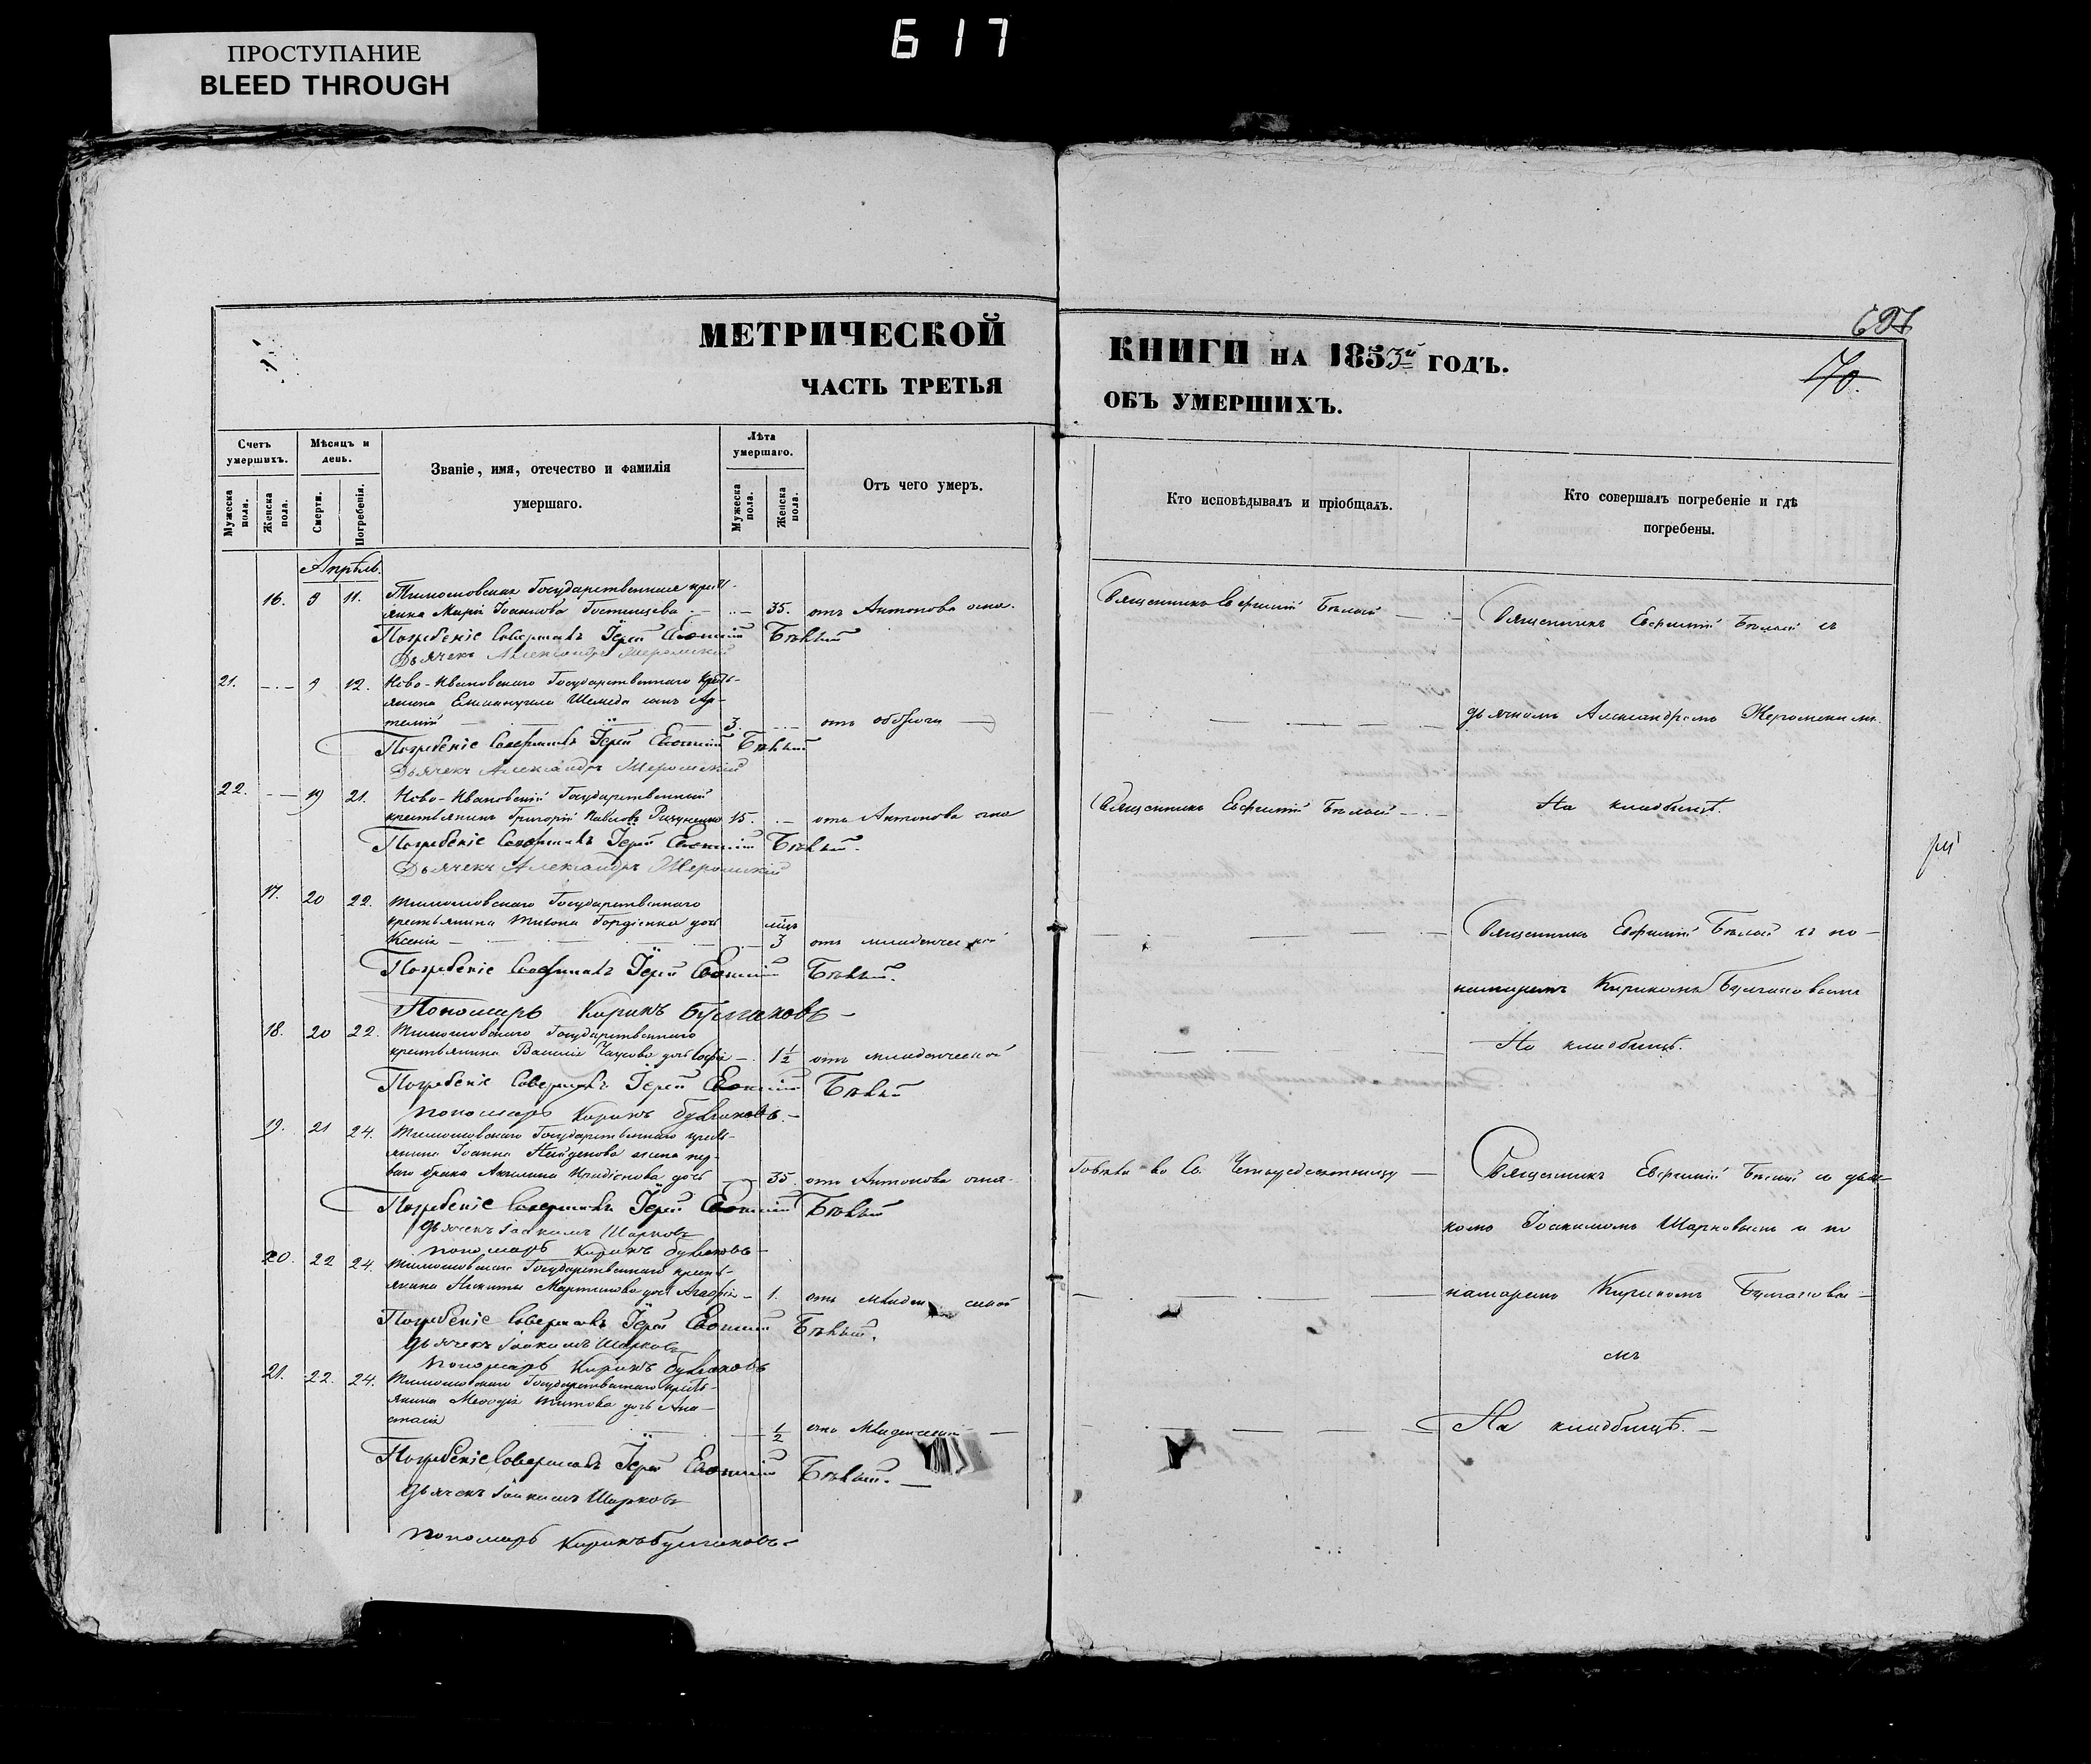 ПРОСТУПАНИЕ
BLEED THROUGH
617
МЕТРИЧЕСКОЙ
ЧАСТЬ ТРЕТЬЯ
Счетъ умершихъ.
Мѣсяцъ и день.
Званіе, имя, отечество и фамилія
умершаго.
Лѣта умершаго.
Отъ чего умеръ.
Мужеска пола.
Женска пола.
Смерти.
Погребенія.
Мужеска пола.
Женска пола.
Апрѣль.
16. 9 11. Государственная крестьянка Марія 35. отъ Антонова огня.
Погребеніе совершалъ Іерей Евѳимій Бѣлый
Дьячекъ Александръ Жеромскій
21. 9 12. Ново-Ивановскаго Государственнаго кресть-
янина Еммануила сынъ Ар-
темій 3. отъ
Погребеніе совершалъ Іерей Евѳимій Бѣлый
Дьячекъ Александръ Жеромскій
22. 19 21. Ново-Ивановскій Государственный
крестьянинъ Григорій Павловъ 15. отъ Антонова огня
Погребеніе совершалъ Іерей Евѳимій Бѣлый.
Дьячекъ Александръ Жеромскій
17. 20 22. Государственнаго
крестьянина Тихона Гордіенка дочь
Ксенія 3 отъ младенческой
Погребеніе совершалъ Іерей Евѳимій Бѣлый.
Пономарь Кирикъ Булгаковъ
18. 20 22. Государственнаго
крестьянина Василія дочь Софія 1½ отъ младенческой
Погребеніе совершалъ Іерей Евѳимій Бѣлый
Пономарь Кирикъ Булгаковъ.
19. 21 24. Государственнаго кресть-
янина Іоанна Найденова жена пер-
ваго брака Акилина дочь 35. отъ Антонова огня.
Погребеніе совершалъ Іерей Евѳимій Бѣлый
Дьячекъ Іоакимъ Шарковъ
Пономарь Кирикъ Булгаковъ
20. 22 24. Государственнаго кресть-
янина Никиты Мартинова дочь Агафія 1. отъ
Погребеніе совершалъ Іерей Евѳимій Бѣлый.
Дьячекъ Іоакимъ Шарковъ
Пономарь Кирикъ Булгаковъ
21. 22. 24. Государственнаго кресть-
янина Меѳодія Титова дочь Ана-
стасія ½ отъ
Погребеніе совершалъ Іерей Евѳимій Бѣлый.
Дьячекъ Іоакимъ Шарковъ
Пономарь Кирикъ Булгаковъ
КНИГИ НА 1853й ГОДЪ.
ОБЪ УМЕРШИХЪ.
70.
Кто исповѣдывалъ и пріобщалъ.
Кто совершалъ погребеніе и гдѣ
погребены.
Священникъ Евфимій Бѣлый
Священникъ Евфимій Бѣлый съ
дьячкомъ Александромъ Жеромскимъ.
Священникъ Евфимій Бѣлый
На кладбищѣ.
Священникъ Евфимій Бѣлый съ по-
намаремъ Кирикомъ Булгаковымъ
На кладбищѣ.
Говѣла во Св. Четыредесятницу
Священникъ Евфимій Бѣлый съ дьяч-
комъ Іоакимомъ Шарковымъ и по
намаремъ Кирикомъ Булгаковы-
мъ
На кладбищѣ.